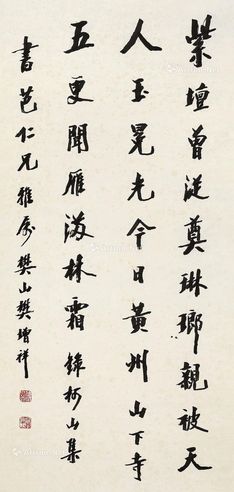 紫壇曾從奠琳瑯親被天
人玉晃光今日黃州山下寺
五更聞雁滿林霜 錄柯山集
書芭仁兄雅屬 樊山樊增祥